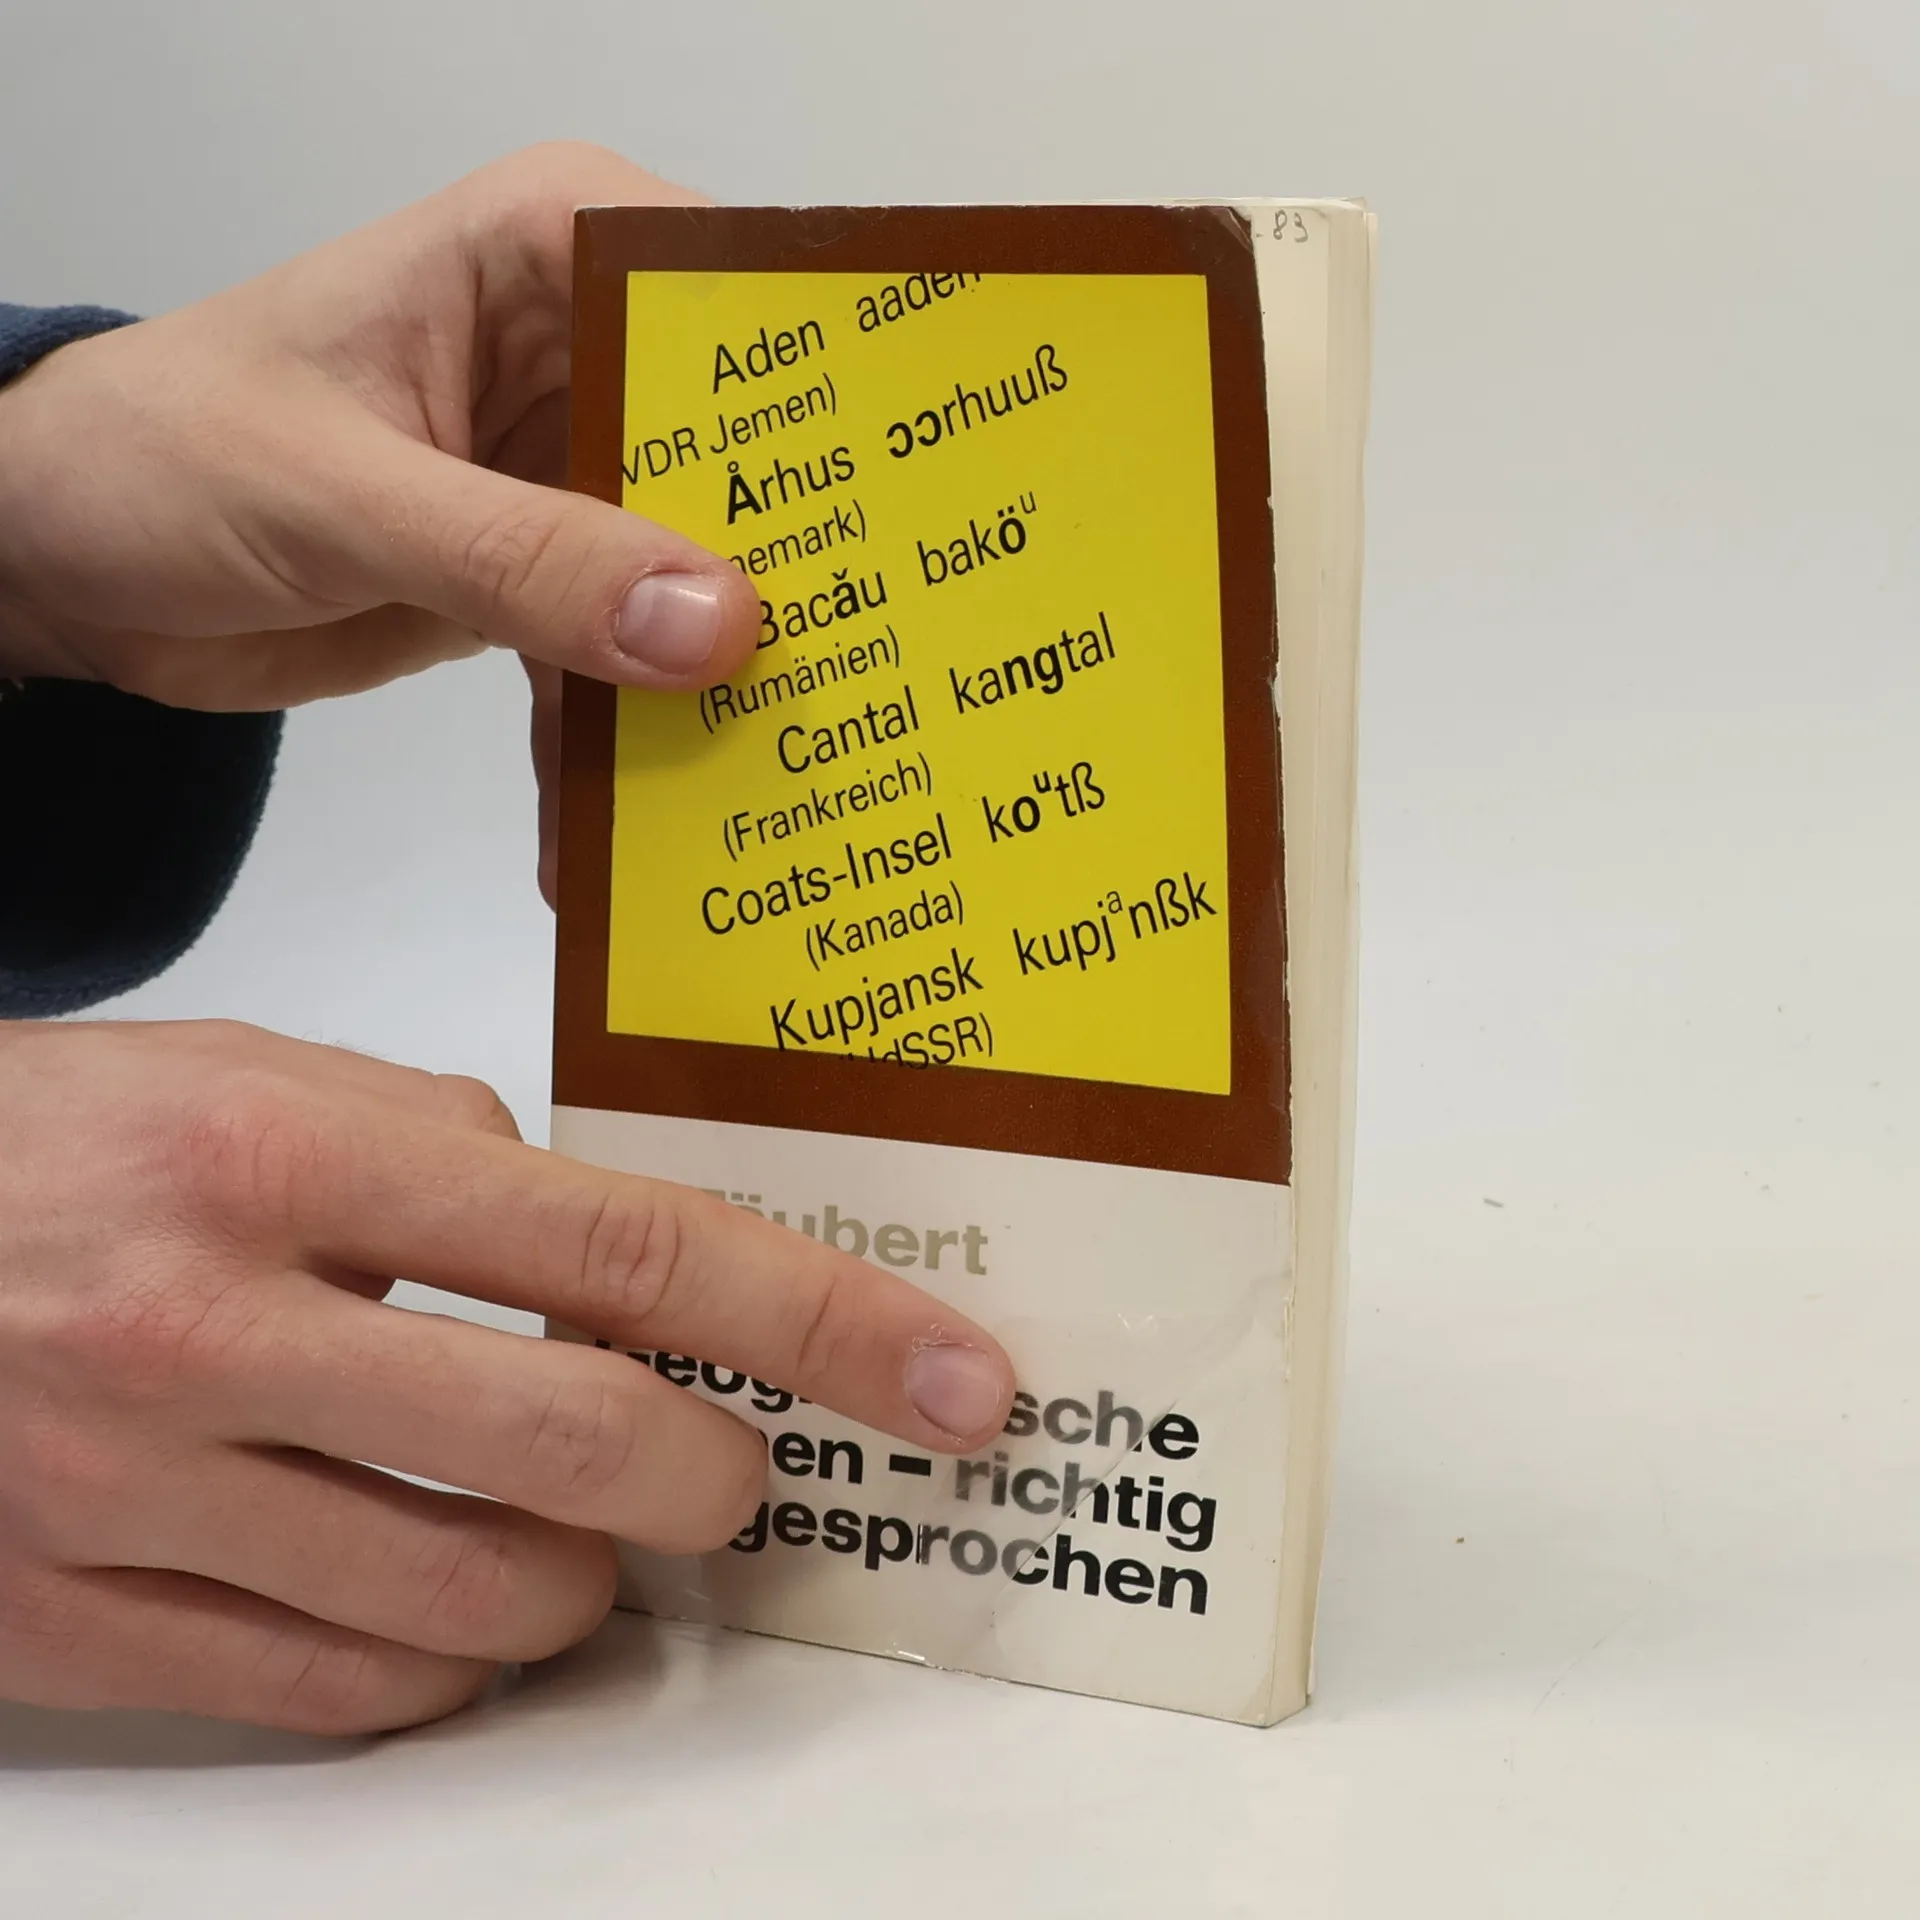 -83
Aden aaden
VDR Jemen)
Århus ɔɔrhuuß
nemark)
Bacău baköᵘ
(Rumänien)
Cantal kangtal
(Frankreich)
Coats-Insel koᵘtß
(Kanada)
Kupjansk kupjᵃnßk
UdSSR)
Täubert
sche
en – richtig
gesprochen